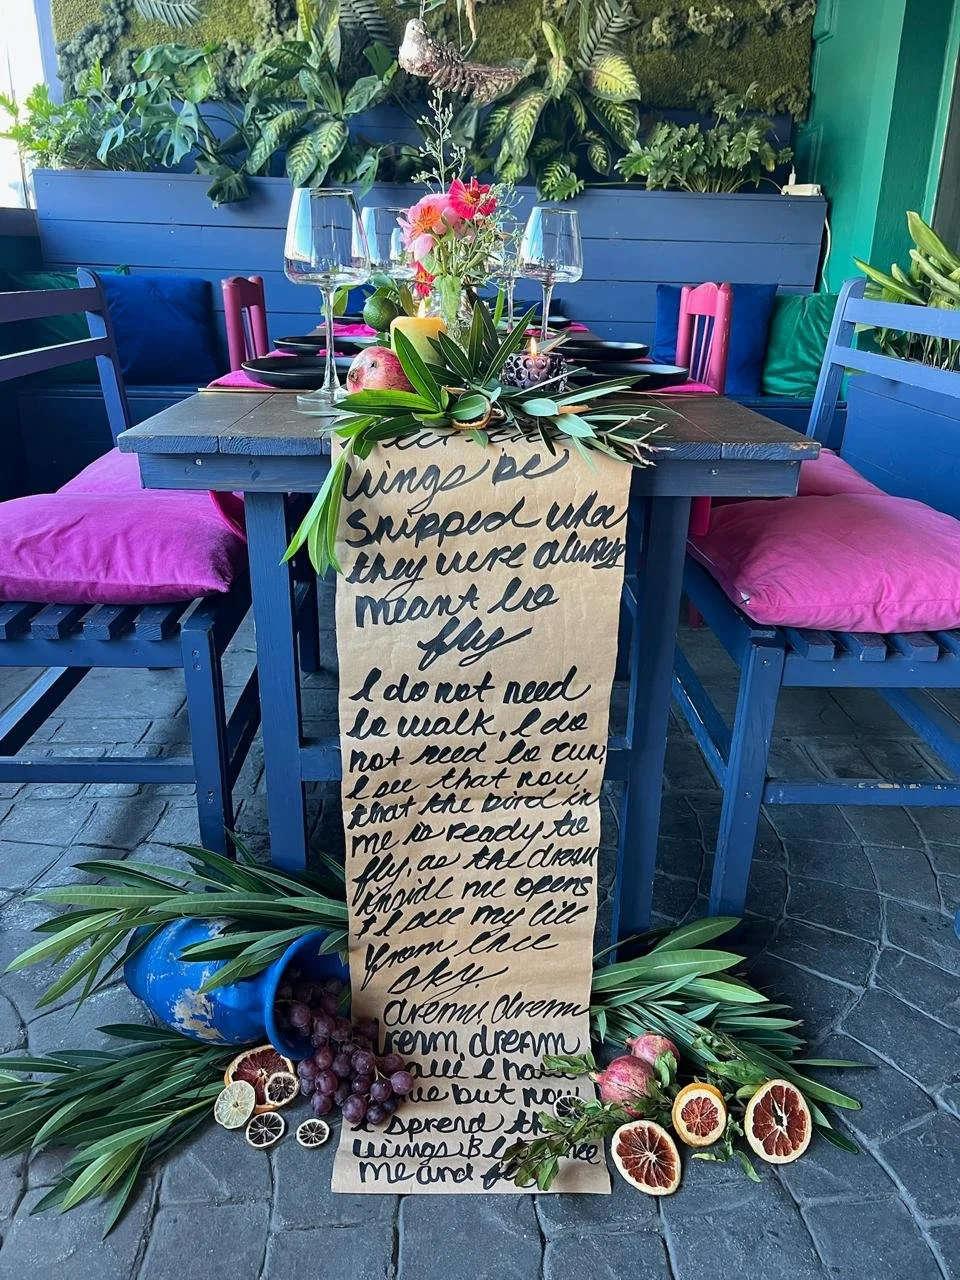 wings be
snipped when
they were always
meant to
fly
I do not need
to walk, I do
not need to run,
I see that now
that the bird in
me is ready to
fly, as the dream
inside me opens
& I see my life
from the
sky.
dream dream
dream dream
all I have
but now
spread the
wings B
me and